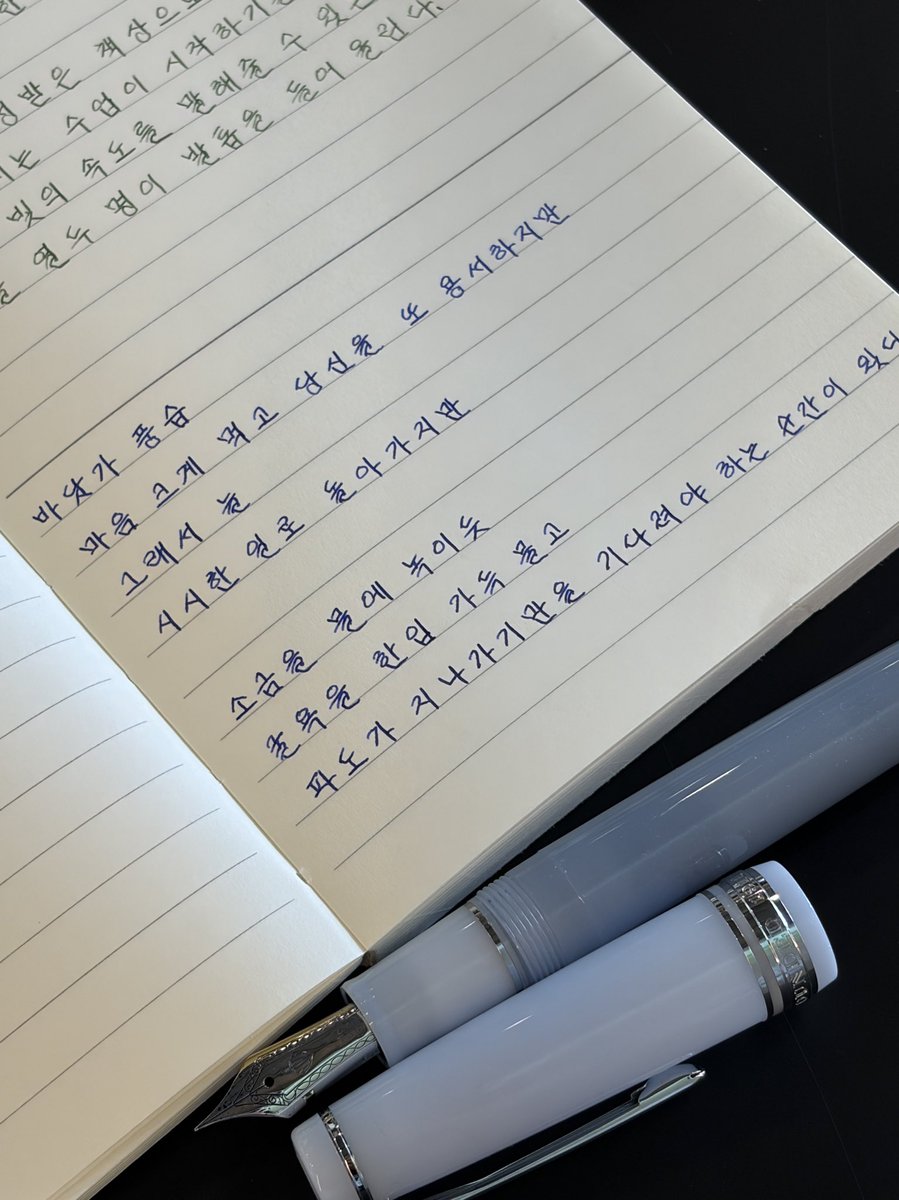 책상으로
수업이 시작하기
빛의 속도를 말해줄 수
열두 명이 발톱을 들어 올린다.
바닷가 풍습
마음 크게 먹고 당신을 또 용서하지만
그래서 늘
시시한 일로 돌아가지만
소금을 물에 녹이듯
한입 가득 물고
파도가 지나가기만을 기다려야 하는 순간이 있다